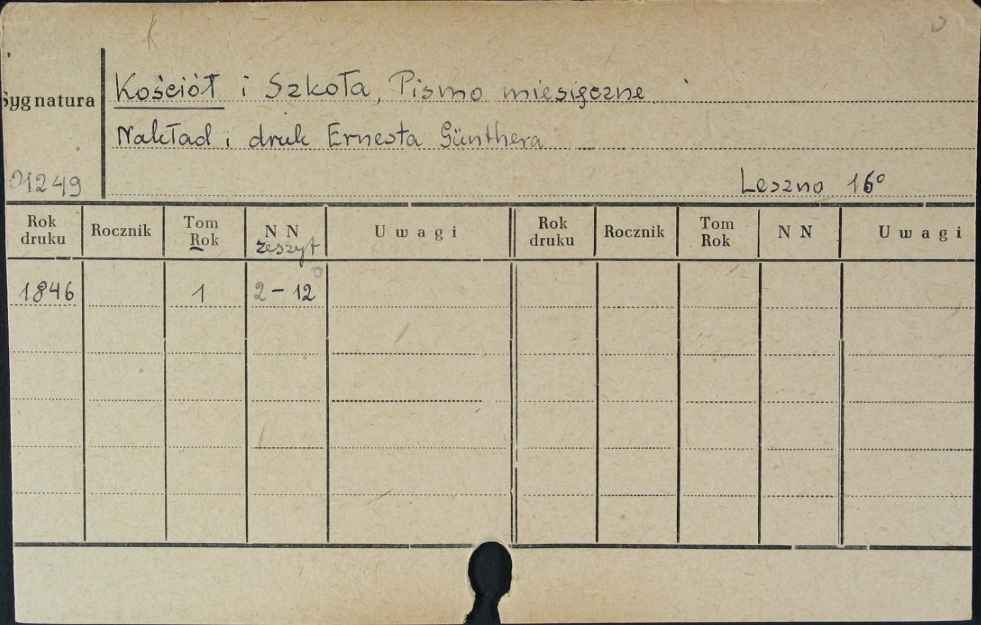 Sygnatura
Kościół i Szkoła, Pismo miesięczne
Nakład i druk Ernesta Günthera
01249
Leszno 16°
Rok druku Rocznik Tom Rok N N zeszyt Uwagi Rok druku Rocznik Tom Rok N N Uwagi
1846 1 2 - 12